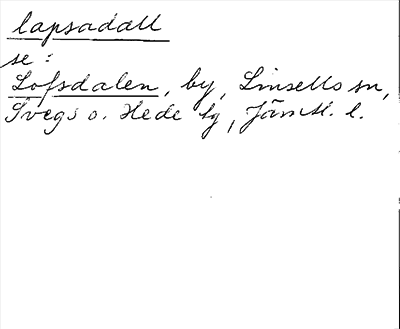 lapsadall
se:
Lofsdalen, by, Linsells sn,
Svegs o. Hede tg, Jämtl. l.